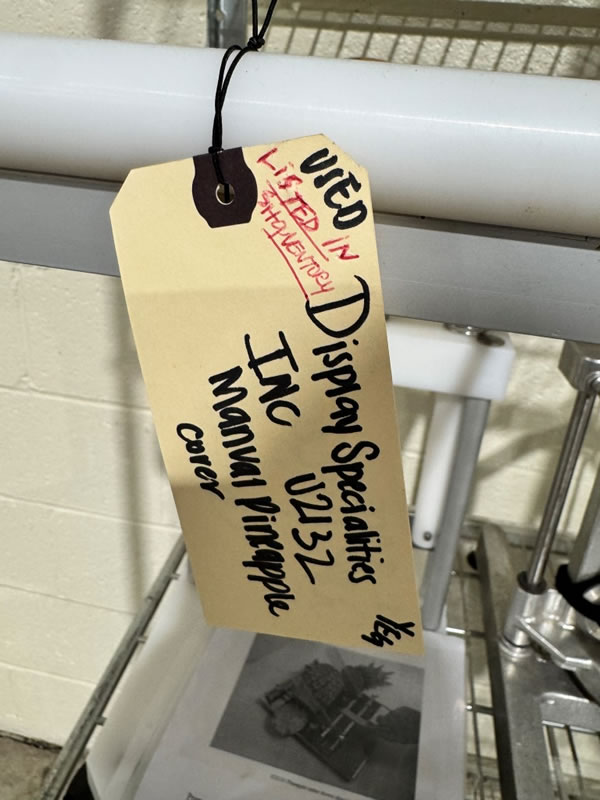 USED
LISTED IN
Display Specialities
INC
U2132
Manual Pineapple
corer